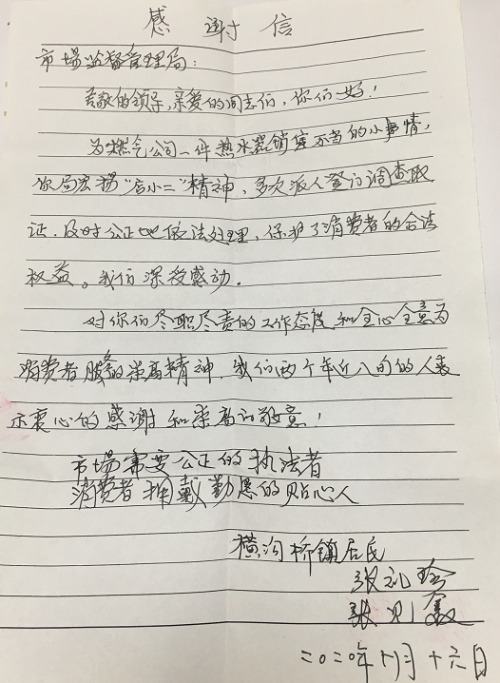 感谢信
市场监督管理局：
尊敬的领导，亲爱的同志们，你们好！
为燃气公司一件热水器销售不当的小事情，
你局发扬“店小二”精神，多次派人登门调查取
证，及时公正地依法处理，保护了消费者的合法
权益。我们深受感动．
对你们尽职尽责的工作态度和全心全意为
消费者服务的崇高精神，我们两个年近八旬的人表
示衷心的感谢和崇高的敬意！
市场需要公正的执法者
消费者拥戴勤恳的贴心人
横沟桥镇居民
张礼
张则
二〇二〇年十月十六日